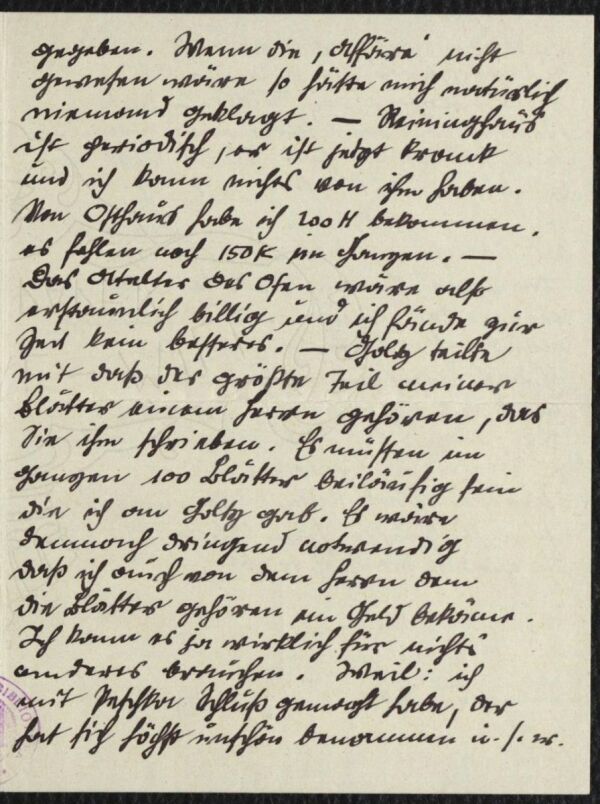 gegeben. Wenn die „Affäre“ nicht
gewesen wäre so hätte mich natürlich
niemand geklagt. — Reininghaus
ist periodisch, er ist jetzt krank
und ich kann nichts von ihm haben.
Von Osthaus habe ich 200 K bekommen.
es fehlen noch 150 K im Ganzen. —
Das Atelier des Osen wäre also
erstaunlich billig und ich fände zur
Zeit kein besseres. — Goltz teilte
mit daß der größte Teil meiner
Blätter einem Herrn gehören, das
Sie ihm schrieben. Es müßten im
Ganzen 100 Blätter beiläufig sein
die ich an Goltz gab. Es wäre
demnach dringend notwendig
daß ich auch von dem Herrn dem
die Blätter gehören ein Geld bekäme.
Ich kann es ja wirklich für nichts
anderes brauchen. Weil: ich
mit Peschka Schluß gemacht habe, der
hat sich höchst unschön benommen u. s. w.